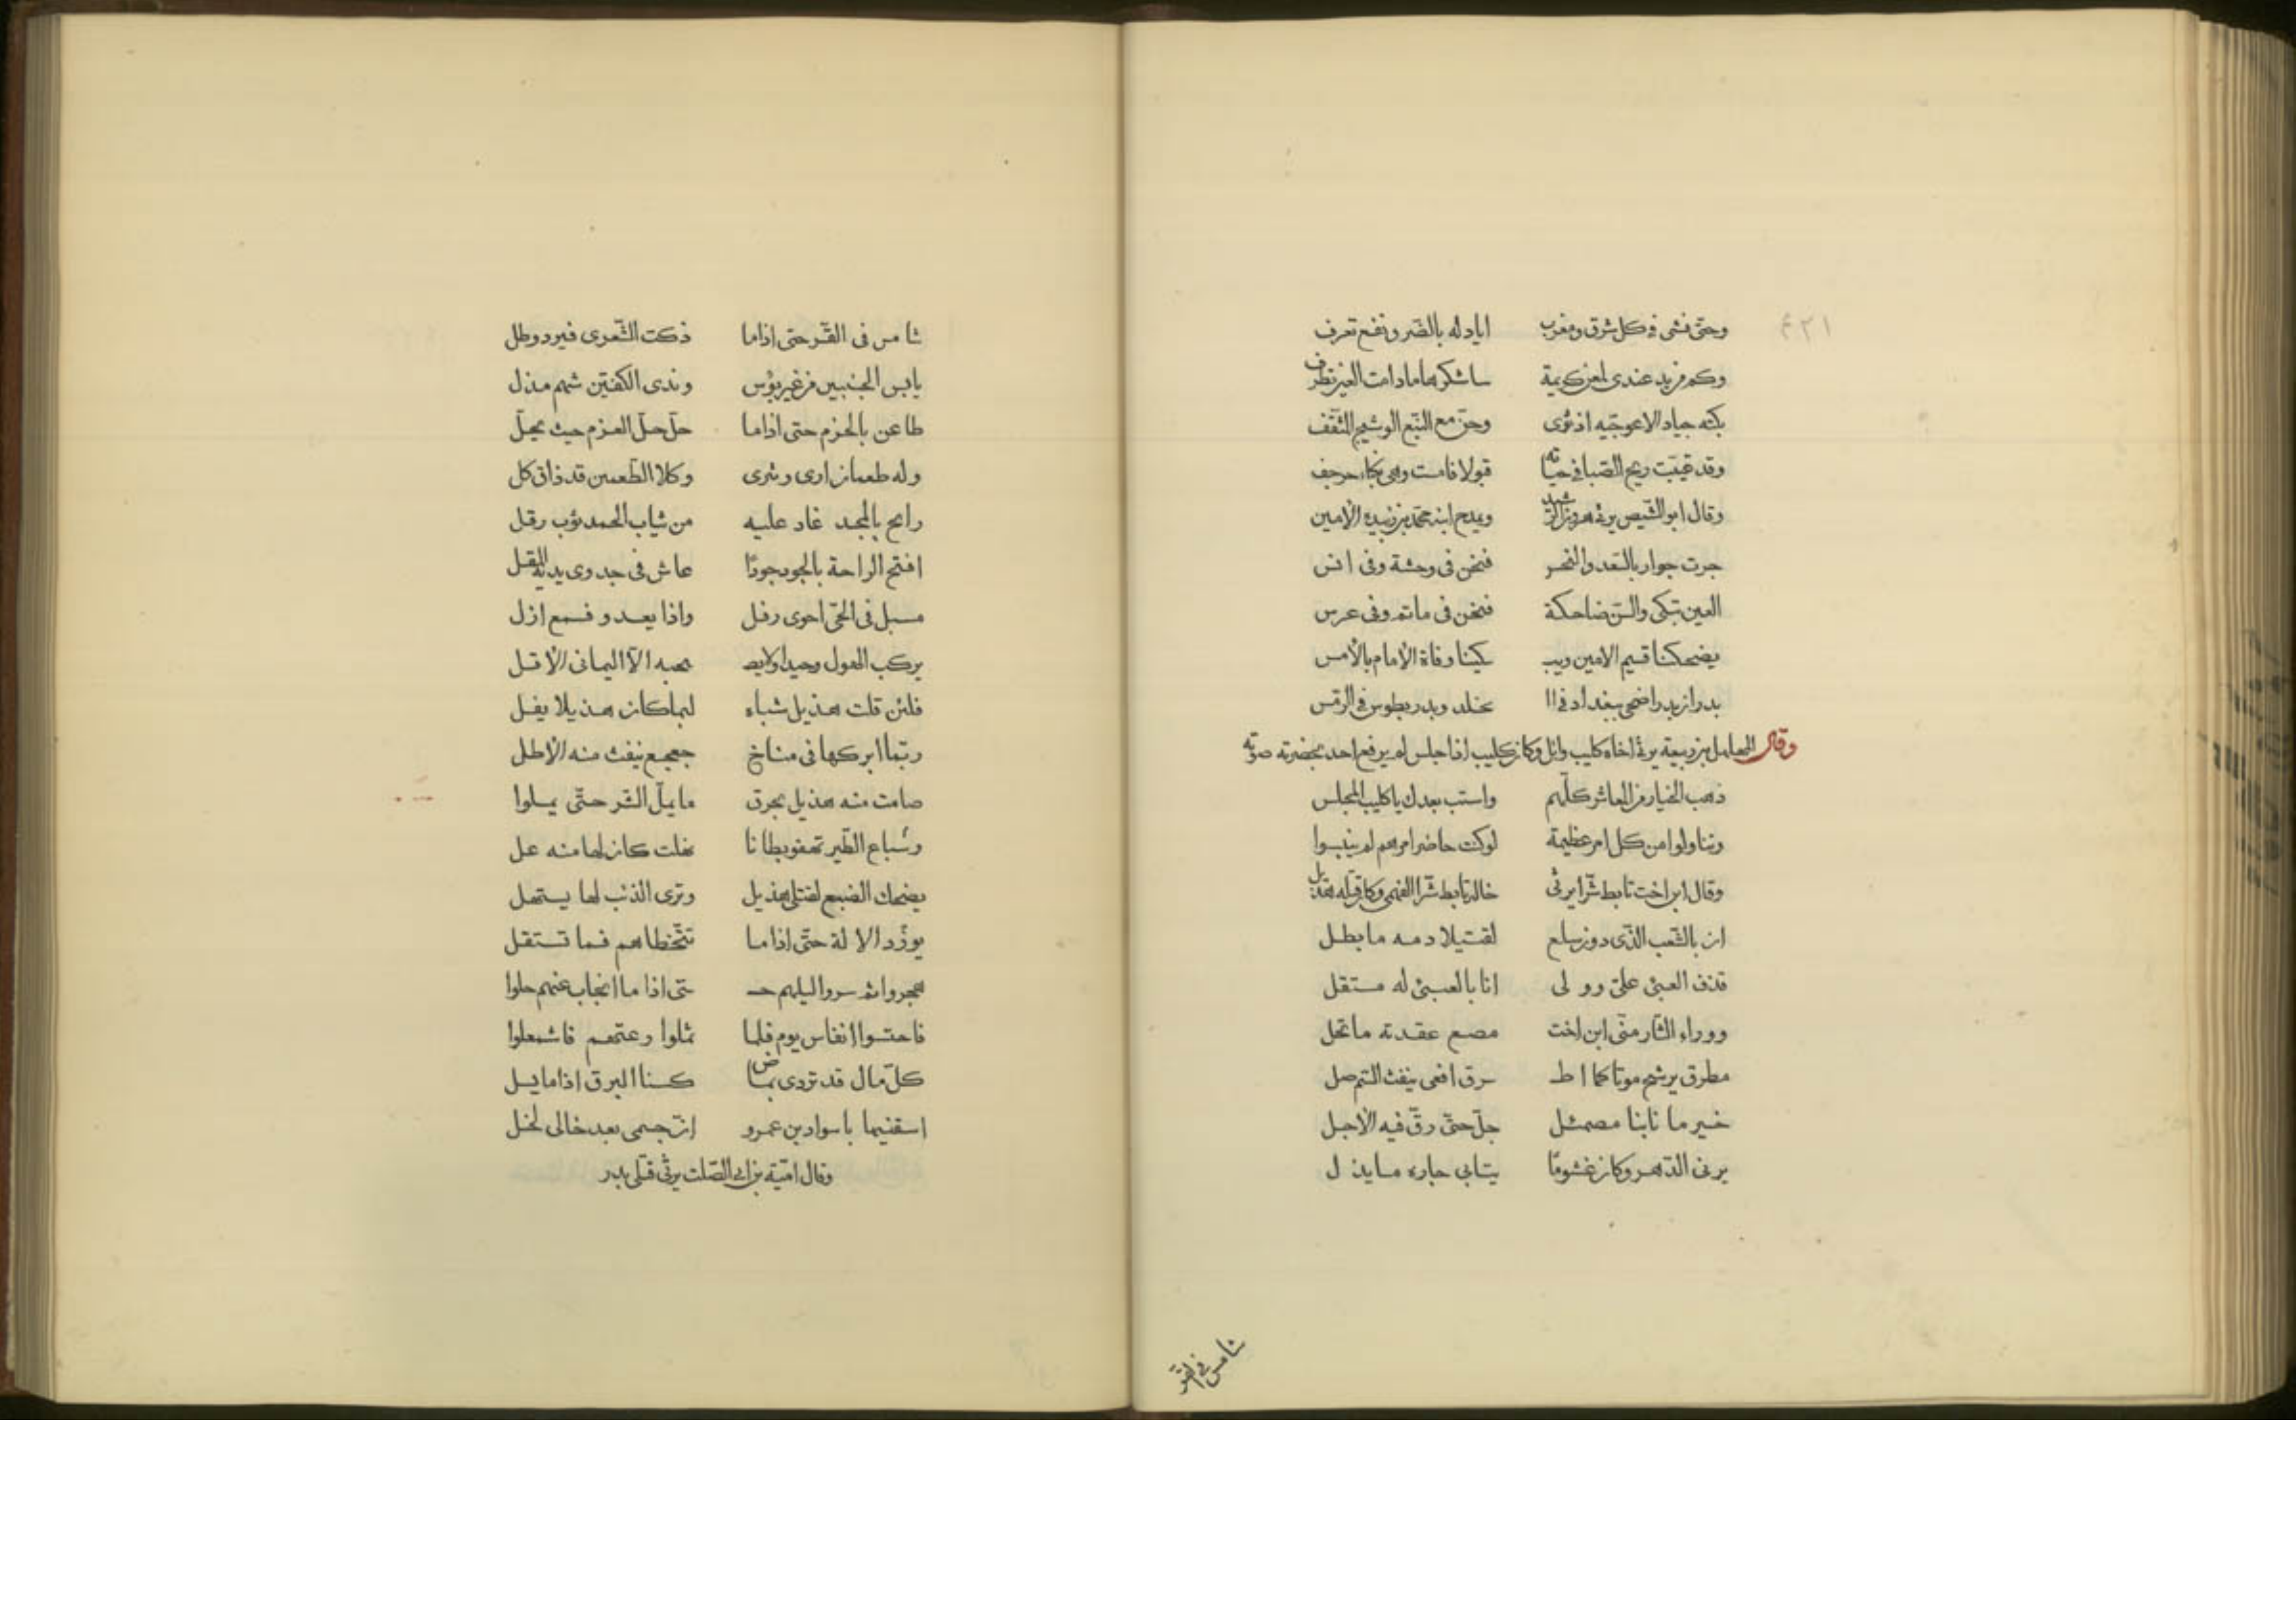 وحتى فشى فى كل شرق ومغرب اياد له بالضر ونفع تعرف
وكم من يد عندى لمعن كريمة ساشكرها ما دامت العين تطرف
بكته جياد الاعوجيه اذ ثوى وحن مع النبع الوشيج المثقف
وقد غيبت ريح الصبا فى حياته قبولا فامست وهى نكباء حرجف
وقال ابو الشيص يرثى هرون الرشيد ويمدح ابنه محمد بن زبيده الامين
جرت جوار بالسعد والنحس فنحن فى وحشة وفى انس
العين تبكى والسن ضاحكة فنحن فى ماتم وفى عرس
يضحكنا قسيم الامين ويب كينا وفاة الامام بالأمس
بدران بدر اضحى ببغداد فى ا لخلد وبدر بطوس فى الرمس
وقال المهلهل بن ربيعة يرثى اخاه كليب وائل وكان كليب اذا جلس لم يرفع احد بحضرته صوته
ذهب الخيار من المعاشر كلهم واستب بعدك يا كليب المجلس
وتناولوا من كل امر عظيمة لو كنت حاضر امرهم لم ينبسوا
وقال ابن اخت تابط شرا يرثى خاله تابط شرا الفهمى وكان قتله هذيل
ان بالشعب الذى دون سلع لقتيلا دمه ما يطل
قذف العبئ على وو لى انا بالعبئ له مستقل
ووراء الثار منى ابن اخت مصع عقدته ما تحل
مطرق يرشح موتا كما اط رق افعى ينفث السم صل
خبر ما نابنا مصمئل جل حتى دق فيه الاجل
بزنى الدهر وكان غشوما بتابى جاره ما يذ ل
شامس فى القر
شامس فى القر حتى اذا ما ذكت الشعرى فبرد وظل
يابس الجنبين من غير بؤس وندى الكفين شهم مذل
ظاعن بالحزم حتى اذا ما حل حل العزم حيث يحل
وله طعمان ارى وشرى وكلا الطعمين قد ذاق كل
رايح بالمجد غاد عليه من ثياب الحمد ثوب رفل
افتح الراحة بالجود جودا عاش فى جدوى يديه المقل
مسبل فى الحى احوى رفل واذا يعدو فسمع ازل
يركب الهول وحيدا ولا يص حبه الا اليمانى الافل
فلئن قلت هذيل شباه لبما كان هذيلا يفل
وبما ابركها فى مناخ جعجع ينقب منه الاظل
صلمت منه هذيل بخرق ما يمل الشر حتى يملوا
وسباع الطير تهفو بطانا نهلت كان لها منه عل
يضحك الضبع لقتلى هذيل وترى الذئب لها يستهل
تتخطاهم فما تستقل
هجروا ثم سروا ليلهم ح تى اذا ما انجاب عنهم حلوا
فاحتسوا انفاس يوم فلما ثملوا رعتهم فاشمعلوا
كل ماض قد تردى بماض كسنا البرق اذا ما يسل
اسقنيها يا سواد بن عمرو ان جسمى بعد خالى لخل
وقال امية بن ابى الصلت يرثى قتلى بدر